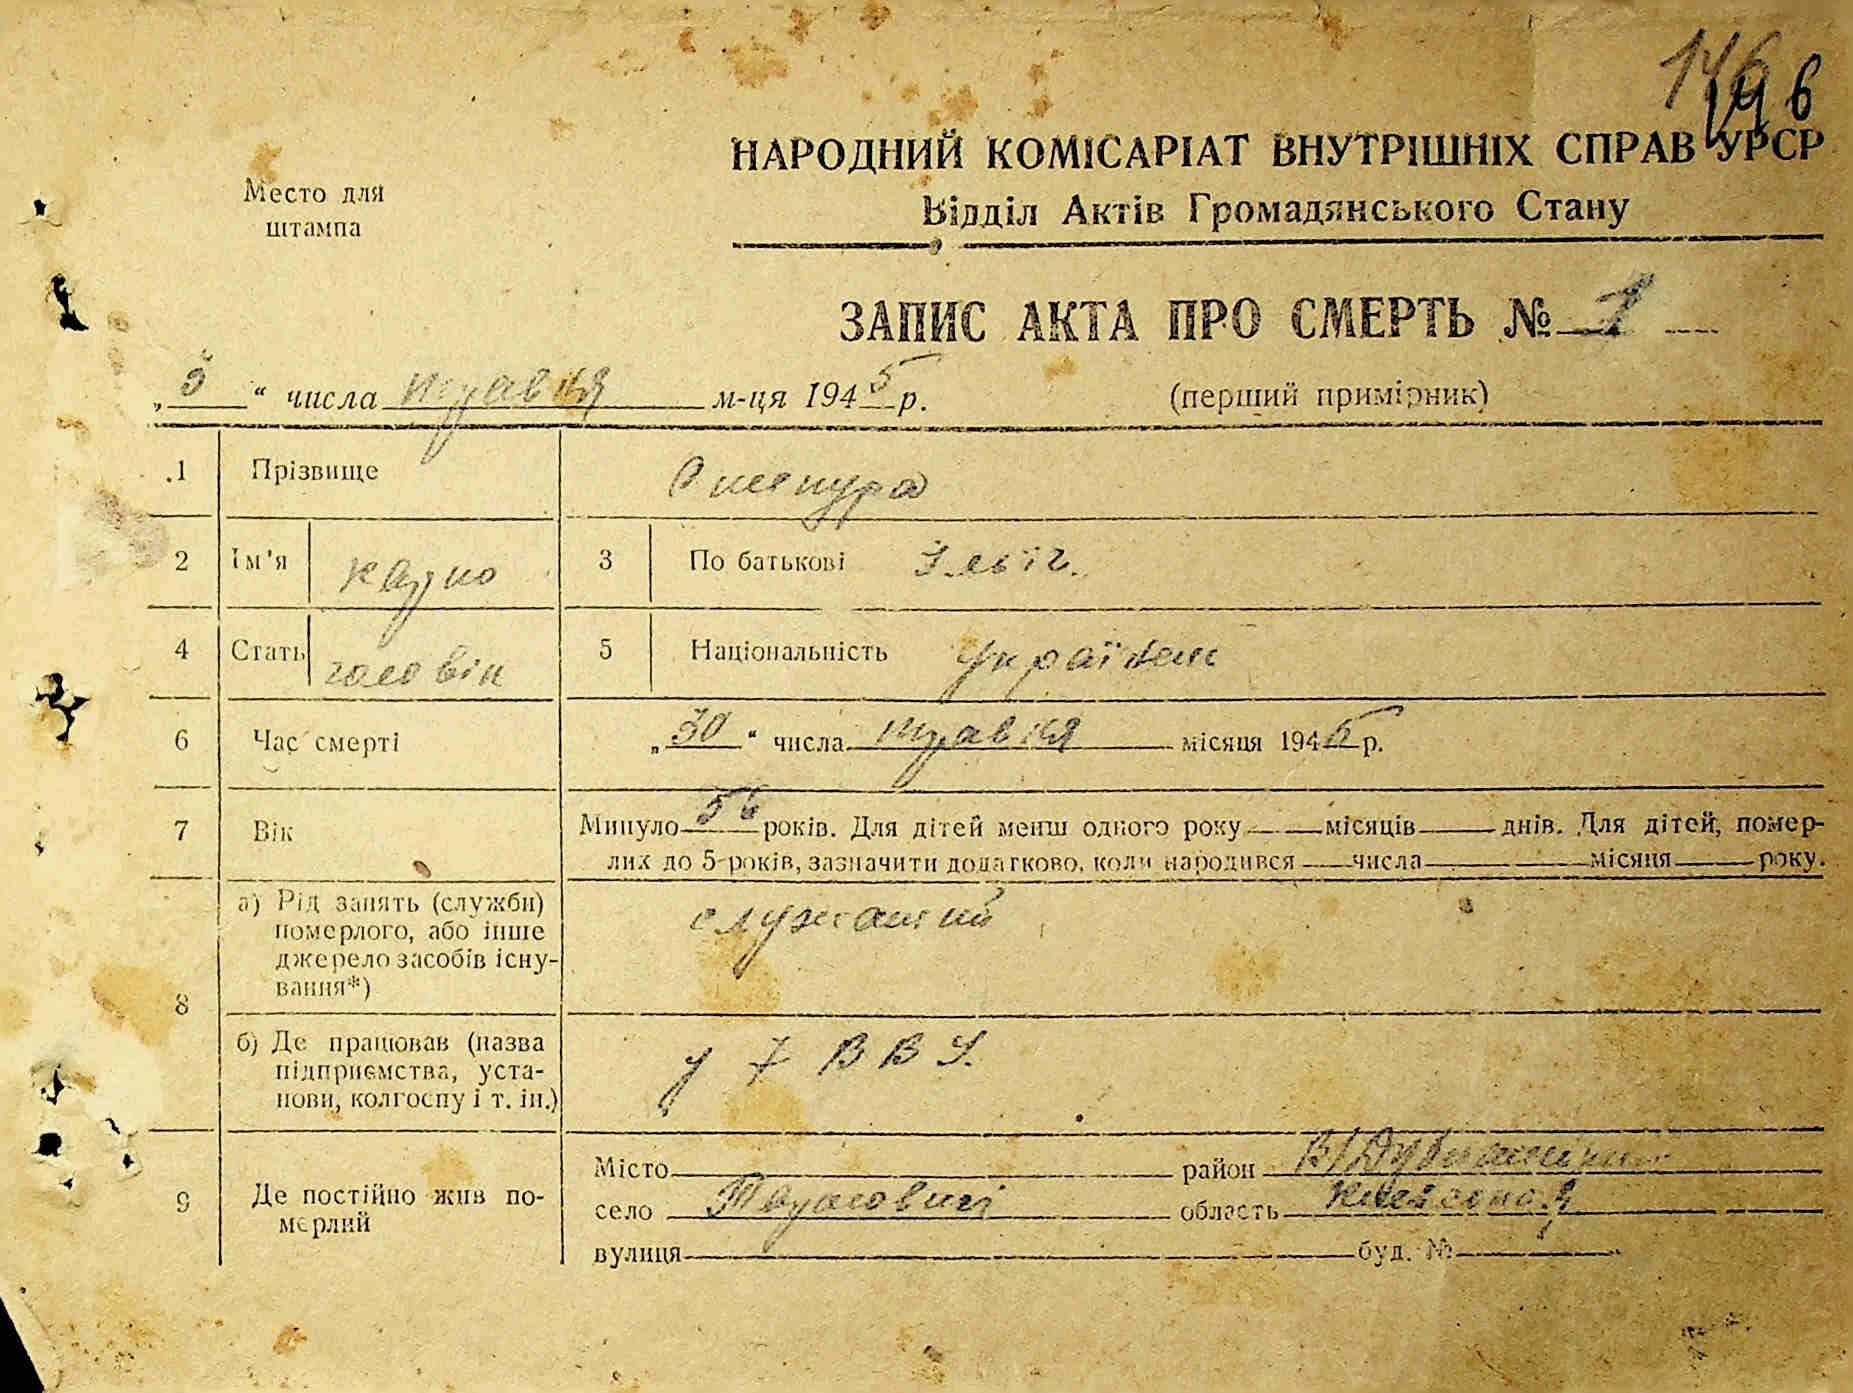 146
146
Место для
штампа
НАРОДНИЙ КОМІСАРІАТ ВНУТРІШНІХ СПРАВ УРСР
Відділ Актів Громадянського Стану
ЗАПИС АКТА ПРО СМЕРТЬ № 1
„5“ числа травня м-ця 1945 р. (перший примірник)
1 Прізвище
2 Ім'я 3 По батькові Ільіч.
4 Стать чоловік 5 Національність Українец
6 Час смерті „30“ числа травня місяця 1945 р.
7 Вік Минуло 56 років. Для дітей менш одного року місяців днів. Для дітей, помер-
лих до 5 років, зазначити додатково, коли народився числа місяця року.
8 а) Рід занять (служби) служащий
померлого, або інше
джерело засобів існу-
вання*)
б) Де працював (назва у 7 В В У.
підприємства, уста-
нови, колгоспу і т. ін.)
9 Де постійно жив по-
мерлий
Місто район
село область
вулиця буд. №